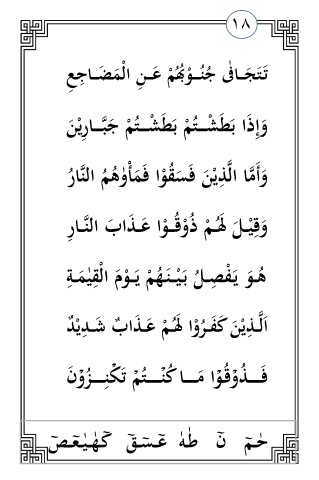 ١٨
تَتَجَافٰى جُنُوْبُهُمْ عَنِ الْمَضَاجِعِ
وَإِذَا بَطَشْتُمْ بَطَشْتُمْ جَبَّارِيْنَ
وَأَمَّا الَّذِيْنَ فَسَقُوْا فَمَأْوٰهُمُ النَّارُ
وَقِيْلَ لَهُمْ ذُوْقُوْا عَذَابَ النَّارِ
هُوَ يَفْصِلُ بَيْنَهُمْ يَوْمَ الْقِيٰمَةِ
اَلَّذِيْنَ كَفَرُوْا لَهُمْ عَذَابٌ شَدِيْدٌ
فَذُوْقُوْا مَا كُنْتُمْ تَكْنِزُوْنَ
حٰمٓ نٓ طٰهٰ عٓسٓقٓ كٓهٰيٰعٓصٓ